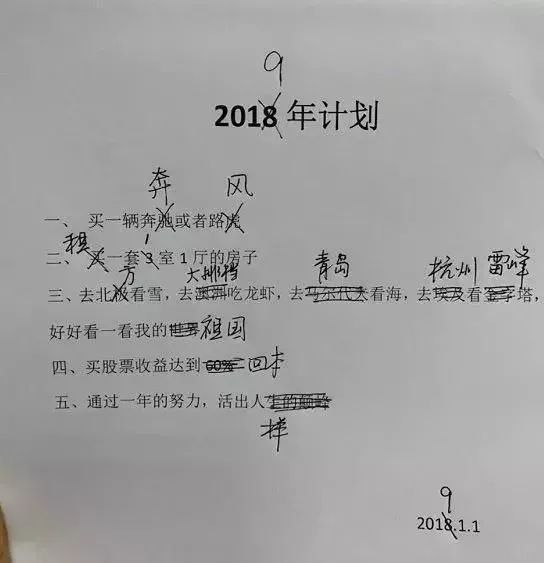 9
2018 年计划
奔 风
一、 买一辆奔驰或者路虎
租 1
二、 买一套 3 室 1 厅的房子
方 大排档 青岛 杭州 雷峰
三、去北极看雪，去澳洲吃龙虾，去马尔代夫看海，去埃及看金字塔，
好好看一看我的世界 祖国
四、买股票收益达到 60% 回本
五、通过一年的努力，活出人生的
样
9
2018.1.1